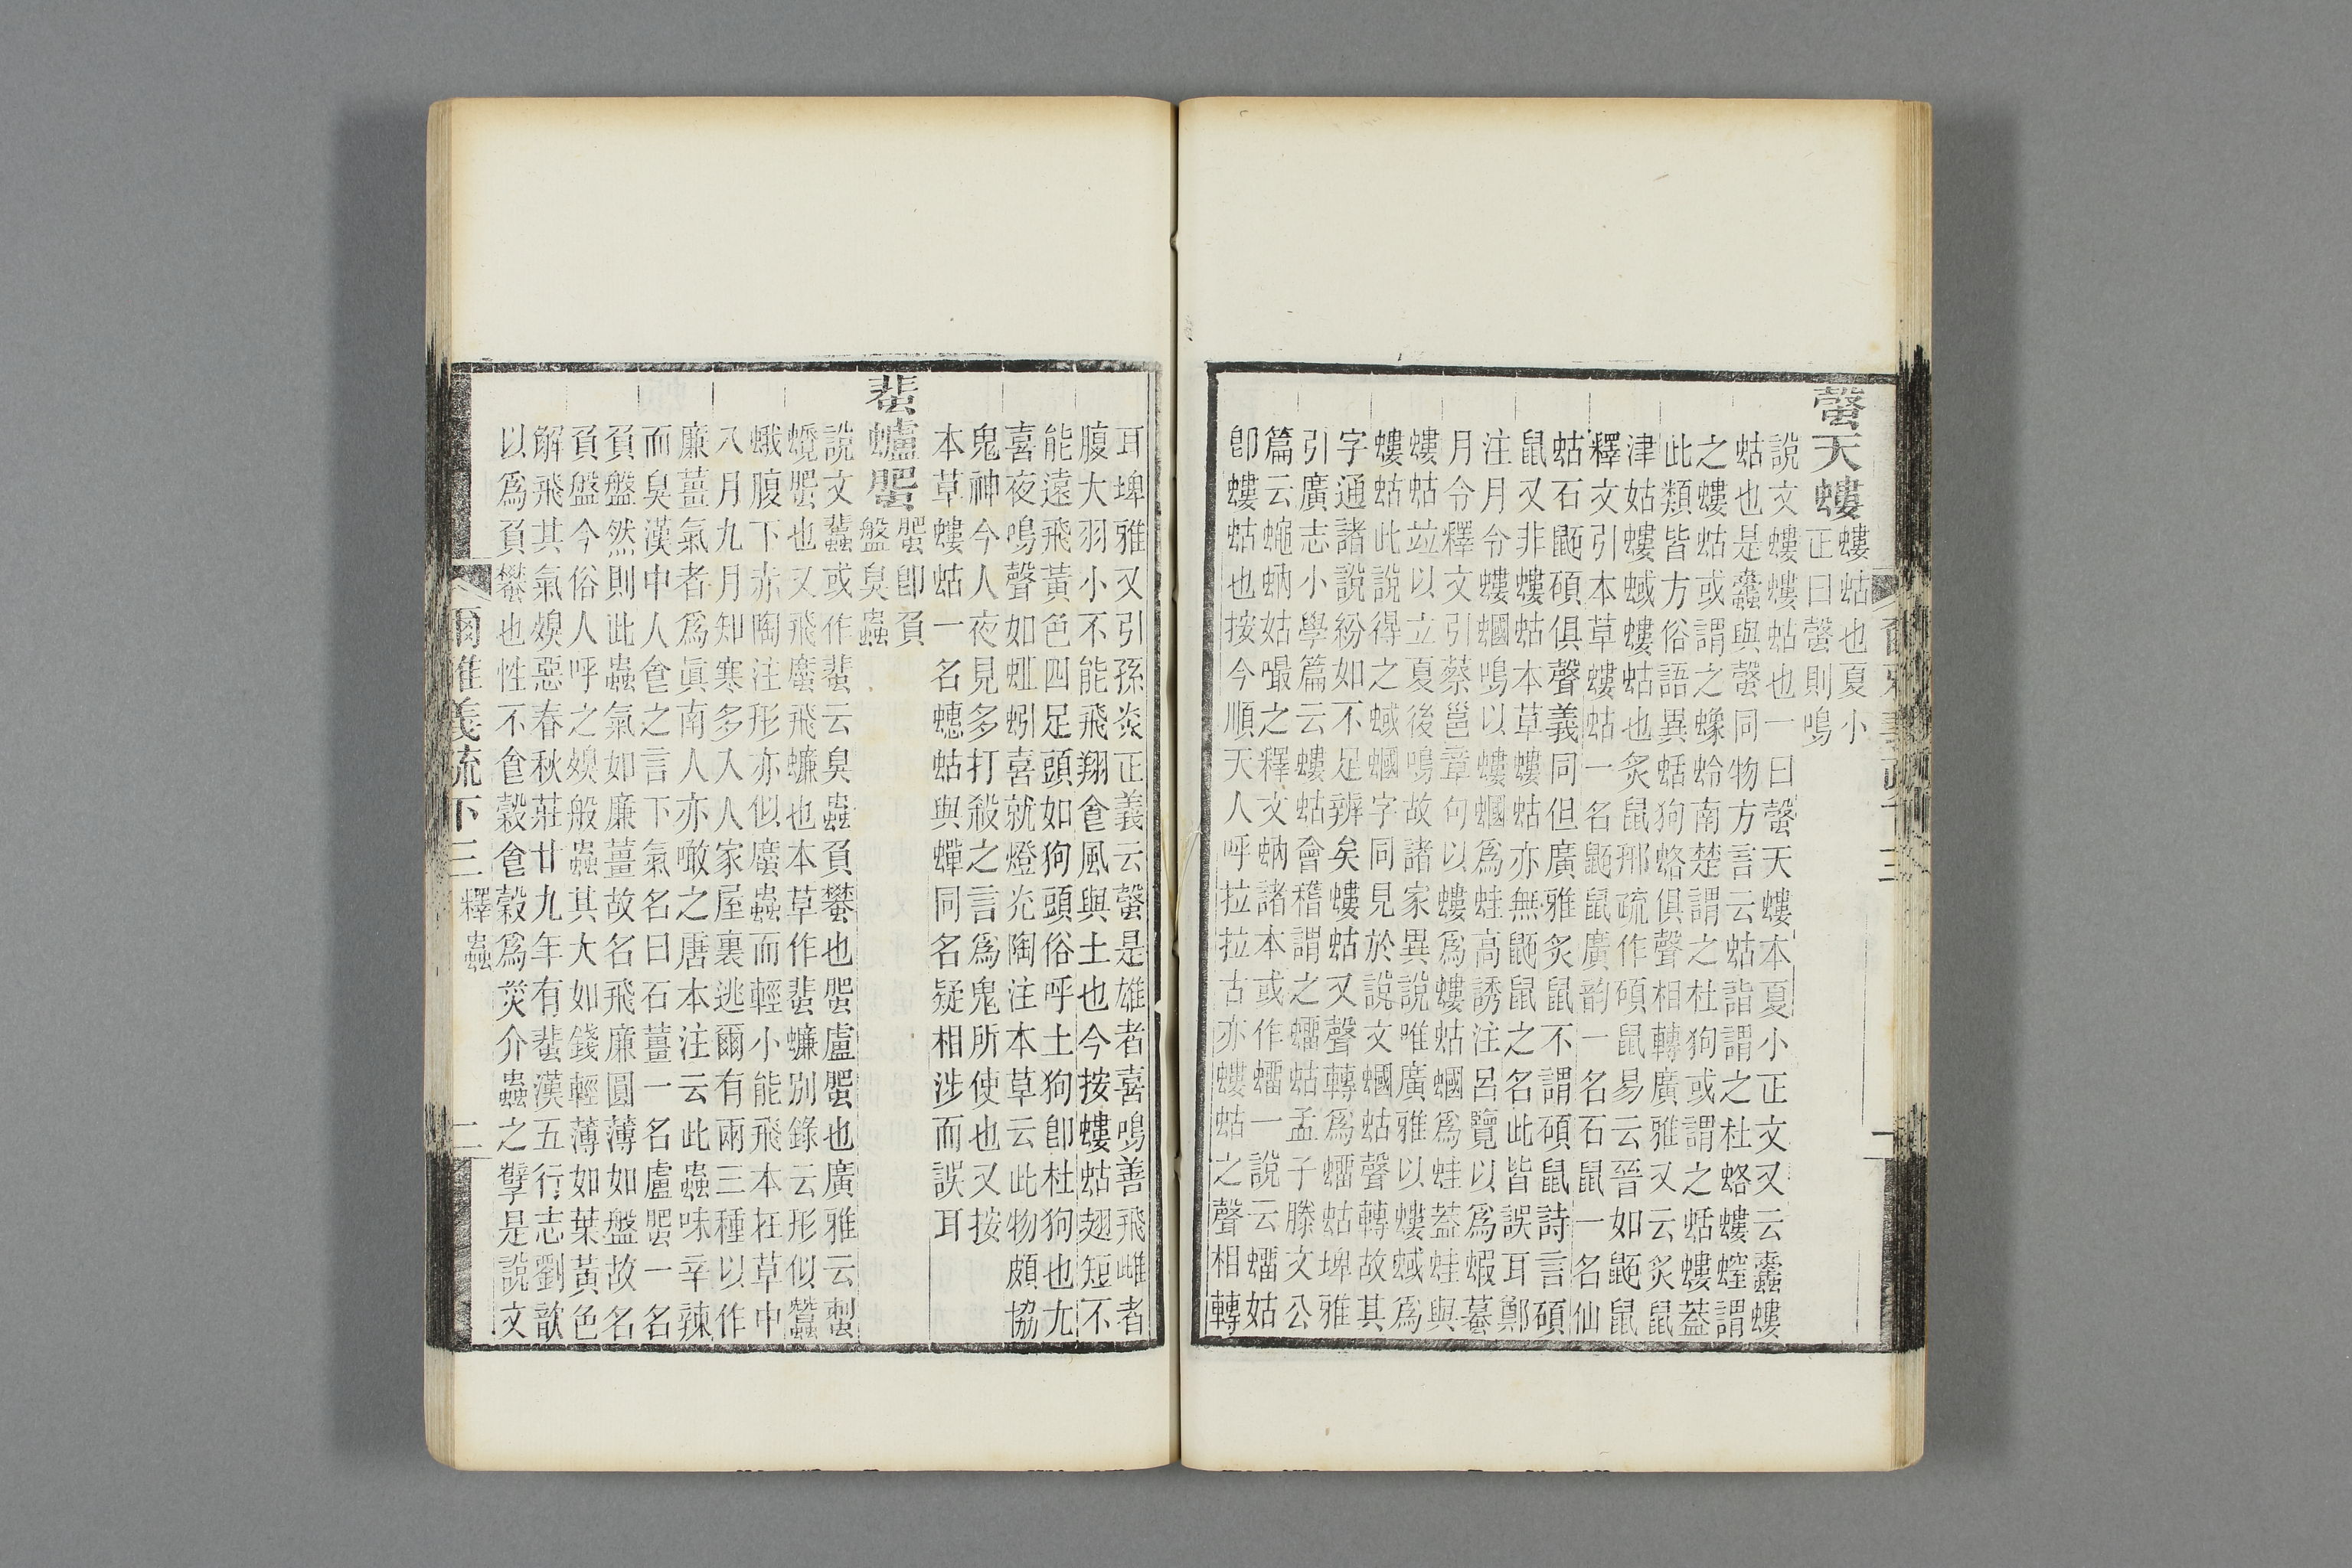 螜天螻
螻蛄也夏小
正曰螜則鳴
說文螻螻蛄也一曰螜天螻本夏小正文又云蠹螻
蛄也是蠹與螜同物方言云蛄詣謂之杜蛒螻螲謂
之螻蛄或謂之蟓蛉南楚謂之杜狗或謂之蛞螻蓋
此類皆方俗語異蛞狗蛒俱聲相轉廣雅又云炙鼠
津姑螻蜮螻蛄也炙鼠邢疏作碩鼠易云晉如鼫鼠
釋文引本草螻蛄一名鼫鼠廣韵一名石鼠一名仙
蛄石鼫碩俱聲義同但廣雅炙鼠不謂碩鼠詩言碩
鼠又非螻蛄本草螻蛄亦無鼫鼠之名此皆誤耳鄭
注月令螻蟈鳴以螻蟈爲蛙高誘注呂覽以爲蝦蟇
月令釋文引蔡邕章句以螻爲螻蛄蟈爲蛙蓋蛙與
螻蛄竝以立夏後鳴故諸家異說唯廣雅以螻蜮爲
螻蛄此說得之蜮蟈字同見於說文蟈蛄聲轉故其
字通諸說紛如不足辨矣螻蛄又聲轉爲蠝蛄埤雅
引廣志小學篇云螻蛄會稽謂之蠝蛄孟子滕文公
篇云蠅蚋姑嘬之釋文蚋諸本或作蠝一說云蠝姑
卽螻蛄也按今順天人呼拉拉古亦螻蛄之聲相轉
耳埤雅又引孫炎正義云螜是雄者喜鳴善飛雌者
腹大羽小不能飛翔食風與土也今按螻蛄翅短不
能遠飛黃色四足頭如狗頭俗呼土狗卽杜狗也尤
喜夜鳴聲如蚯蚓喜就燈光陶注本草云此物頗協
鬼神今人夜見多打殺之言爲鬼所使也又按
本草螻蛄一名蟪蛄與蟬同名疑相涉而誤耳
蜚蠦蜰
蜰卽負
盤臭蟲
說文蟲或作蜚云臭蟲負蠜也蜰盧蜰也廣雅云
蟯蜰也又飛蟅飛蠊也本草作蜚蠊別錄云形似蠶
蛾腹下赤陶注形亦似蟅蟲而輕小能飛本在草中
八月九月知寒多入人家屋裏逃爾有兩三種以作
廉薑氣者爲眞南人亦噉之唐本注云此蟲味辛辣
而臭漢中人食之言下氣名曰石薑一名盧蜰一名
負盤然則此蟲氣如廉薑故名飛廉圓薄如盤故名
負盤今俗人呼之㛐般蟲其大如錢輕薄如葉黃色
解飛其氣㛐惡春秋莊廿九年有蜚漢五行志劉歆
以爲負蠜也性不食穀食穀爲災介蟲之孽是說文
爾雅義疏下三 釋蟲 二